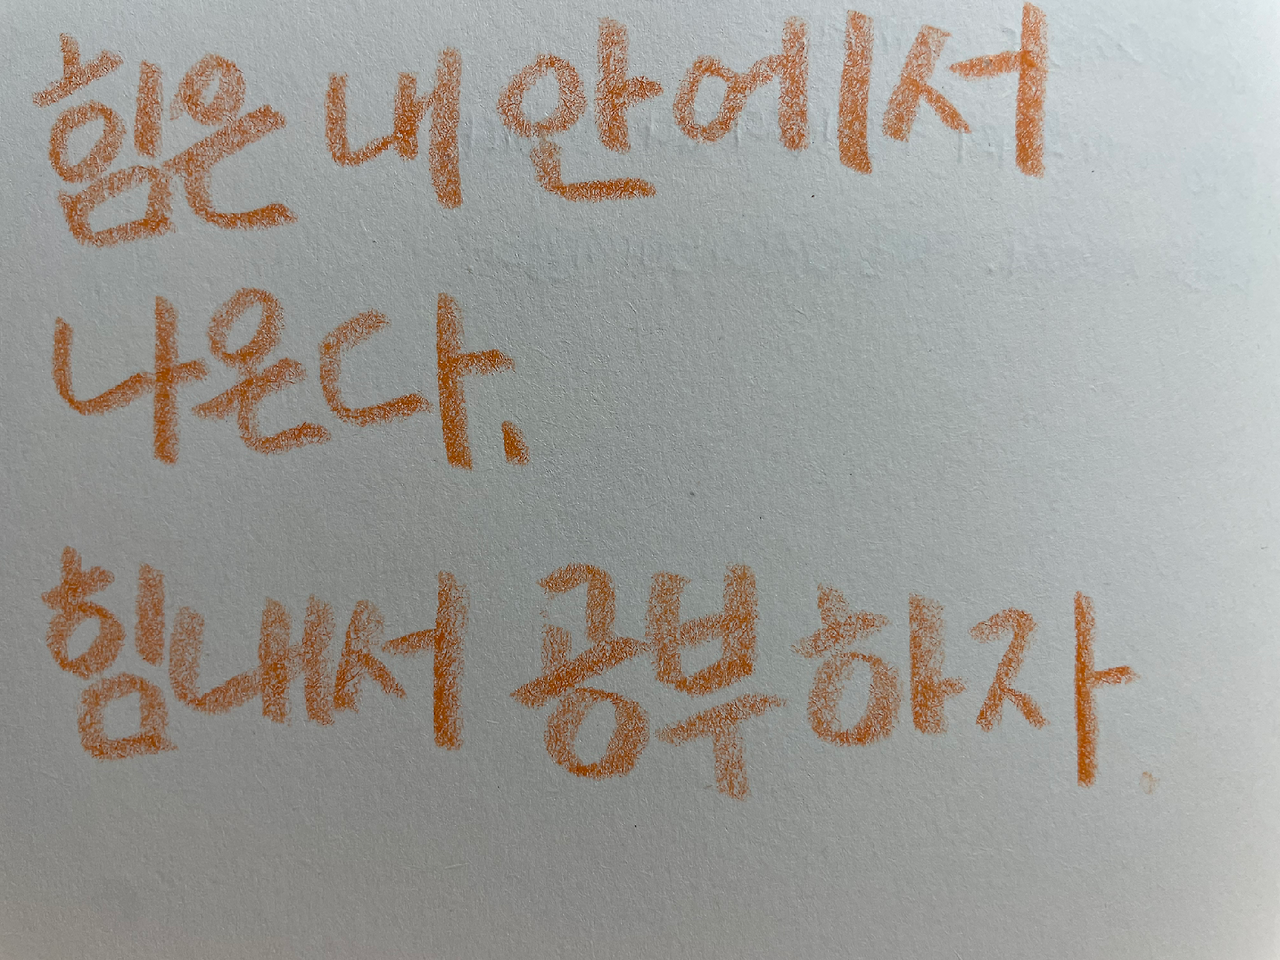 힘은 내 안에서
나온다.
힘내서 공부하자.